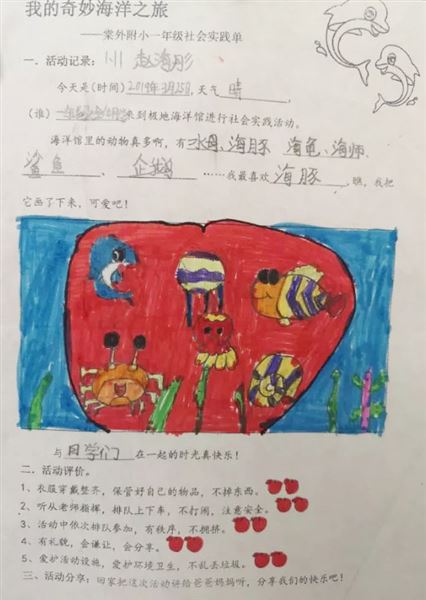 我的奇妙海洋之旅
——棠外附小一年级社会实践单
一、活动记录: 1.11 赵海彤
今天是(时间)2019年3月25日,天气 晴 ,
(谁) 来到极地海洋馆进行社会实践活动。
海洋馆里的动物真多啊,有水母、海豚 海龟、海狮、
鲨鱼 、 企鹅 ……我最喜欢 海豚 ,瞧,我把
它画了下来,可爱吧!
与 同学们 在一起的时光真快乐!
二、活动评价。
1、衣服穿戴整齐,保管好自己的物品,不掉东西。
2、听从老师指挥,排队上下车,不打闹,注意安全。
3、活动中依次排队参加,有秩序,不拥挤。
4、有礼貌,会谦让,会分享。
5、爱护活动设施,爱护环境卫生,不乱丢垃圾。
三、活动分享:回家把这次活动讲给爸爸妈妈听,分享我们的快乐吧!